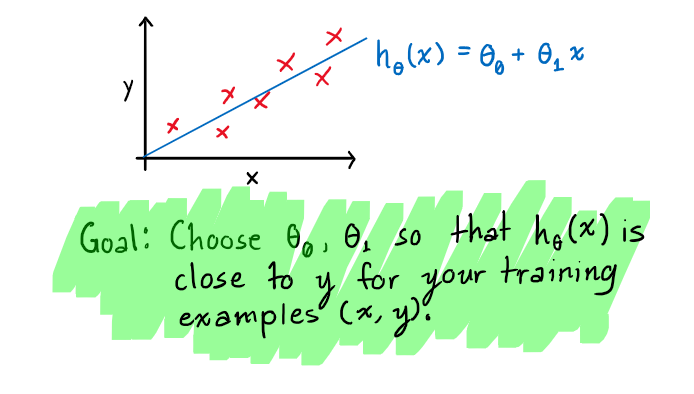 y
h_θ(x) = θ₀ + θ₁ x
x
Goal: Choose θ₀, θ₁ so that h_θ(x) is
close to y for your training
examples (x, y).